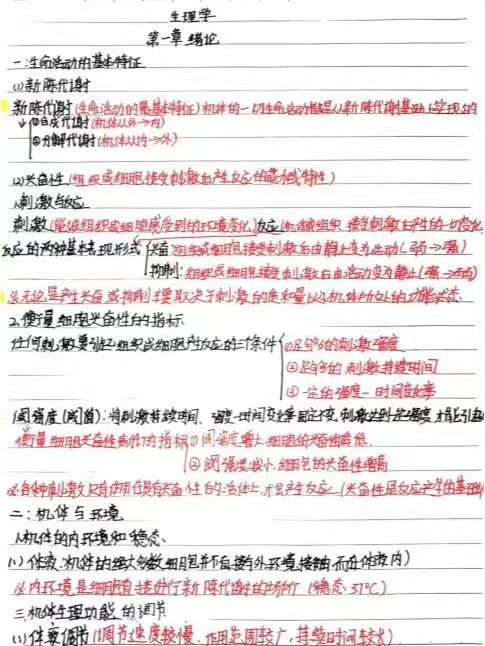 生理学
第一章 绪论
一:生命活动的基本特征
(1)新陈代谢
新陈代谢(生命活动的最基本特征)机体的一切生命活动都是从新陈代谢基础上实现的
①合成代谢(机体从外→内)
②分解代谢(机体从内→外)
(2)兴奋性(组织或细胞接受刺激后产生反应的能力或特性)
1.刺激与反应
刺激(能被组织或细胞感受到的环境变化)反应(机体或组织接受刺激产生的一切变化
反应的两种基本表现形式 兴奋:组织或细胞接受刺激后由静止变为活动(弱→强)
抑制:组织或细胞接受刺激后由活动变为静止(强→弱)
无论是产生兴奋或抑制主要取决于刺激的质和量以及机体所处的功能状态
2.衡量细胞兴奋性的指标
任何刺激要引起组织或细胞产生反应的三个条件 ①足够的刺激强度
②足够的刺激持续时间
③一定的强度-时间变化率
阈强度(阈值):将刺激持续时间、强度-时间变化率固定不变,刺激达到一定强度才能引起
衡量细胞兴奋性高低的指标 ①阈强度增大,细胞的兴奋性降低.
②阈强度减小,细胞的兴奋性增高
各种刺激只有作用在具有兴奋性的活体上,才会产生反应(兴奋性是反应产生的基础
二:机体与环境
1.机体的内环境和稳态.
(1)体液:机体的绝大多数细胞并不直接与外环境接触而在体液内)
内环境是细胞直接进行新陈代谢的场所(稳态 37℃)
三.机体生理功能的调节
(1)体液调节(调节速度较慢.作用范围较广,持续时间较长)